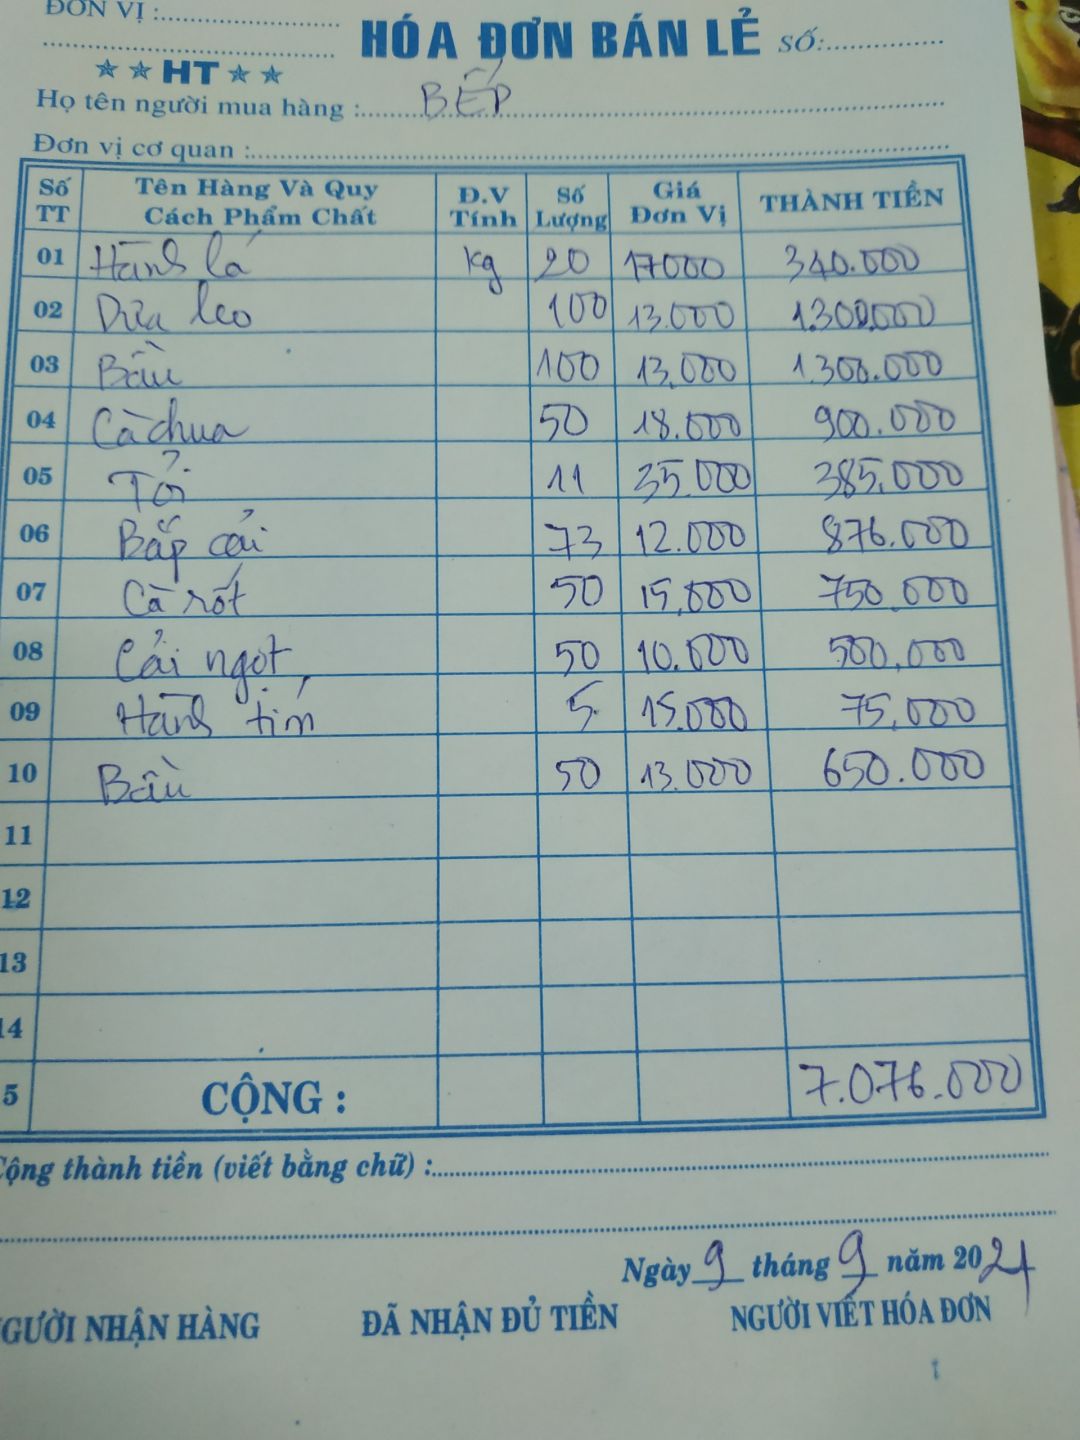 ĐƠN VỊ :
HÓA ĐƠN BÁN LẺ SỐ:
☆ ☆ HT ☆ ☆
Họ tên người mua hàng : BẾP
Đơn vị cơ quan :
Số TT Tên Hàng Và Quy Cách Phẩm Chất Đ.V Tính Số Lượng Giá Đơn Vị THÀNH TIỀN
01 Hành lá kg 20 17000 340.000
02 Dưa leo 100 13.000 1.300.000
03 Bầu 100 13.000 1.300.000
04 Cà chua 50 18.000 900.000
05 Tỏi 11 35.000 385.000
06 Bắp cải 73 12.000 876.000
07 Cà rốt 50 15.000 750.000
08 Cải ngọt 50 10.000 500.000
09 Hành tím 5 15.000 75.000
10 Bầu 50 13.000 650.000
11
12
13
14
5 CỘNG : 7.076.000
Cộng thành tiền (viết bằng chữ) :
Ngày 9 tháng 9 năm 2021
NGƯỜI NHẬN HÀNG ĐÃ NHẬN ĐỦ TIỀN NGƯỜI VIẾT HÓA ĐƠN